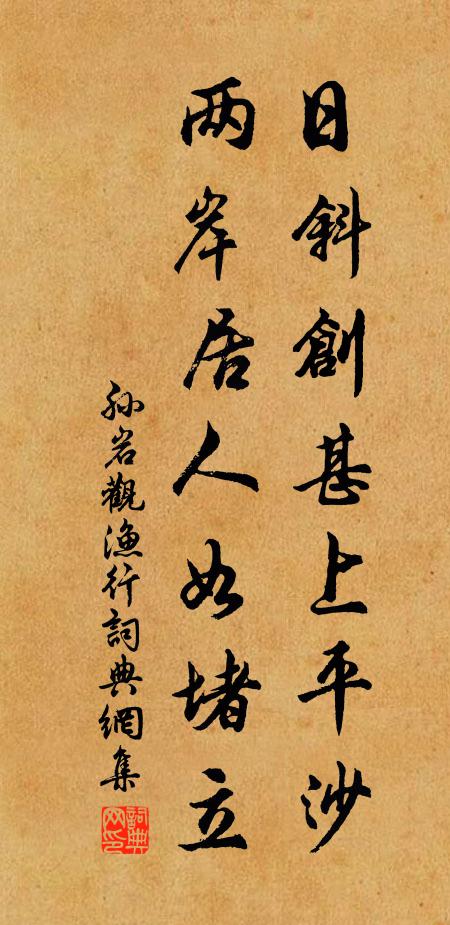 日斜創甚上平沙
两岸居人如堵立
孙岩觀漁行詞典網集
詞典网印